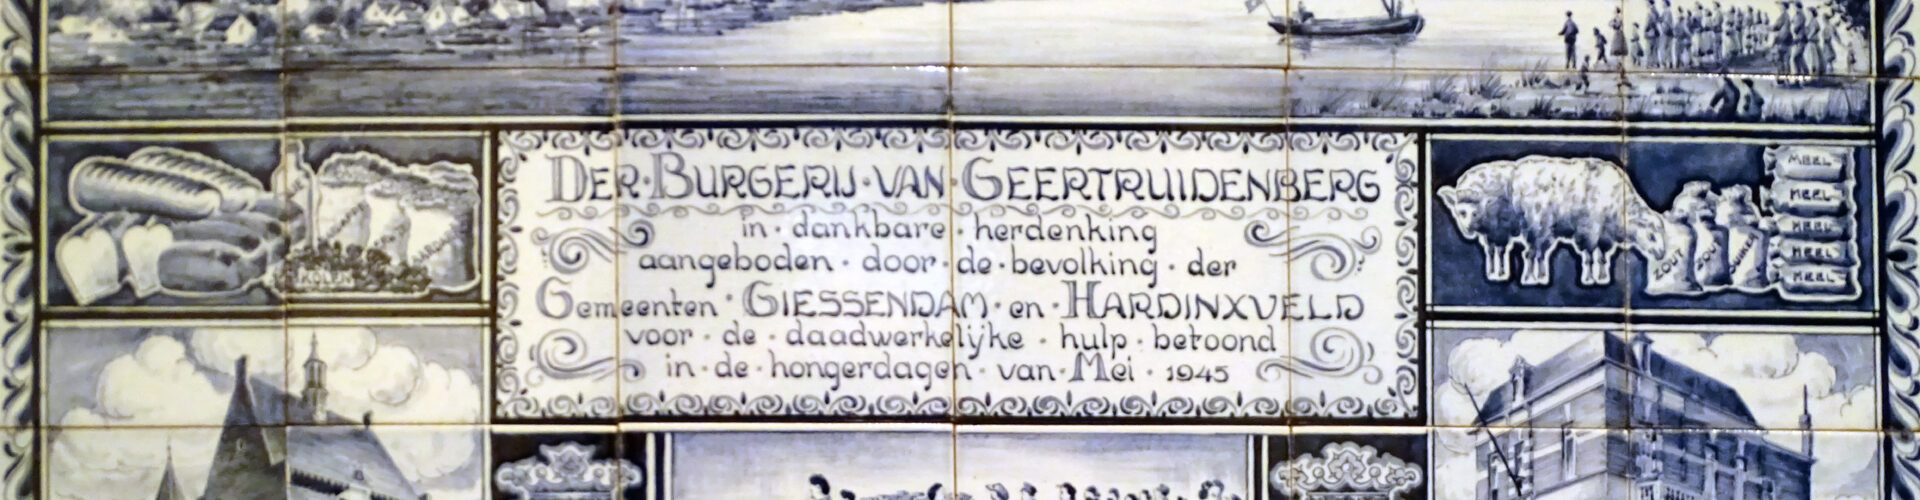 DER·BURGERIJ·VAN·GEERTRUIDENBERG
in·dankbare·herdenking
aangeboden·door·de·bevolking·der
Gemeenten·GIESSENDAM·en·HARDINXVELD
voor·de·daadwerkelijke·hulp·betoond
in·de·hongerdagen·van·Mei·1945
MEEL
MEEL
MEEL
MEEL
MEEL
ZOUT
ZOUT
SUIKER
KOLEN